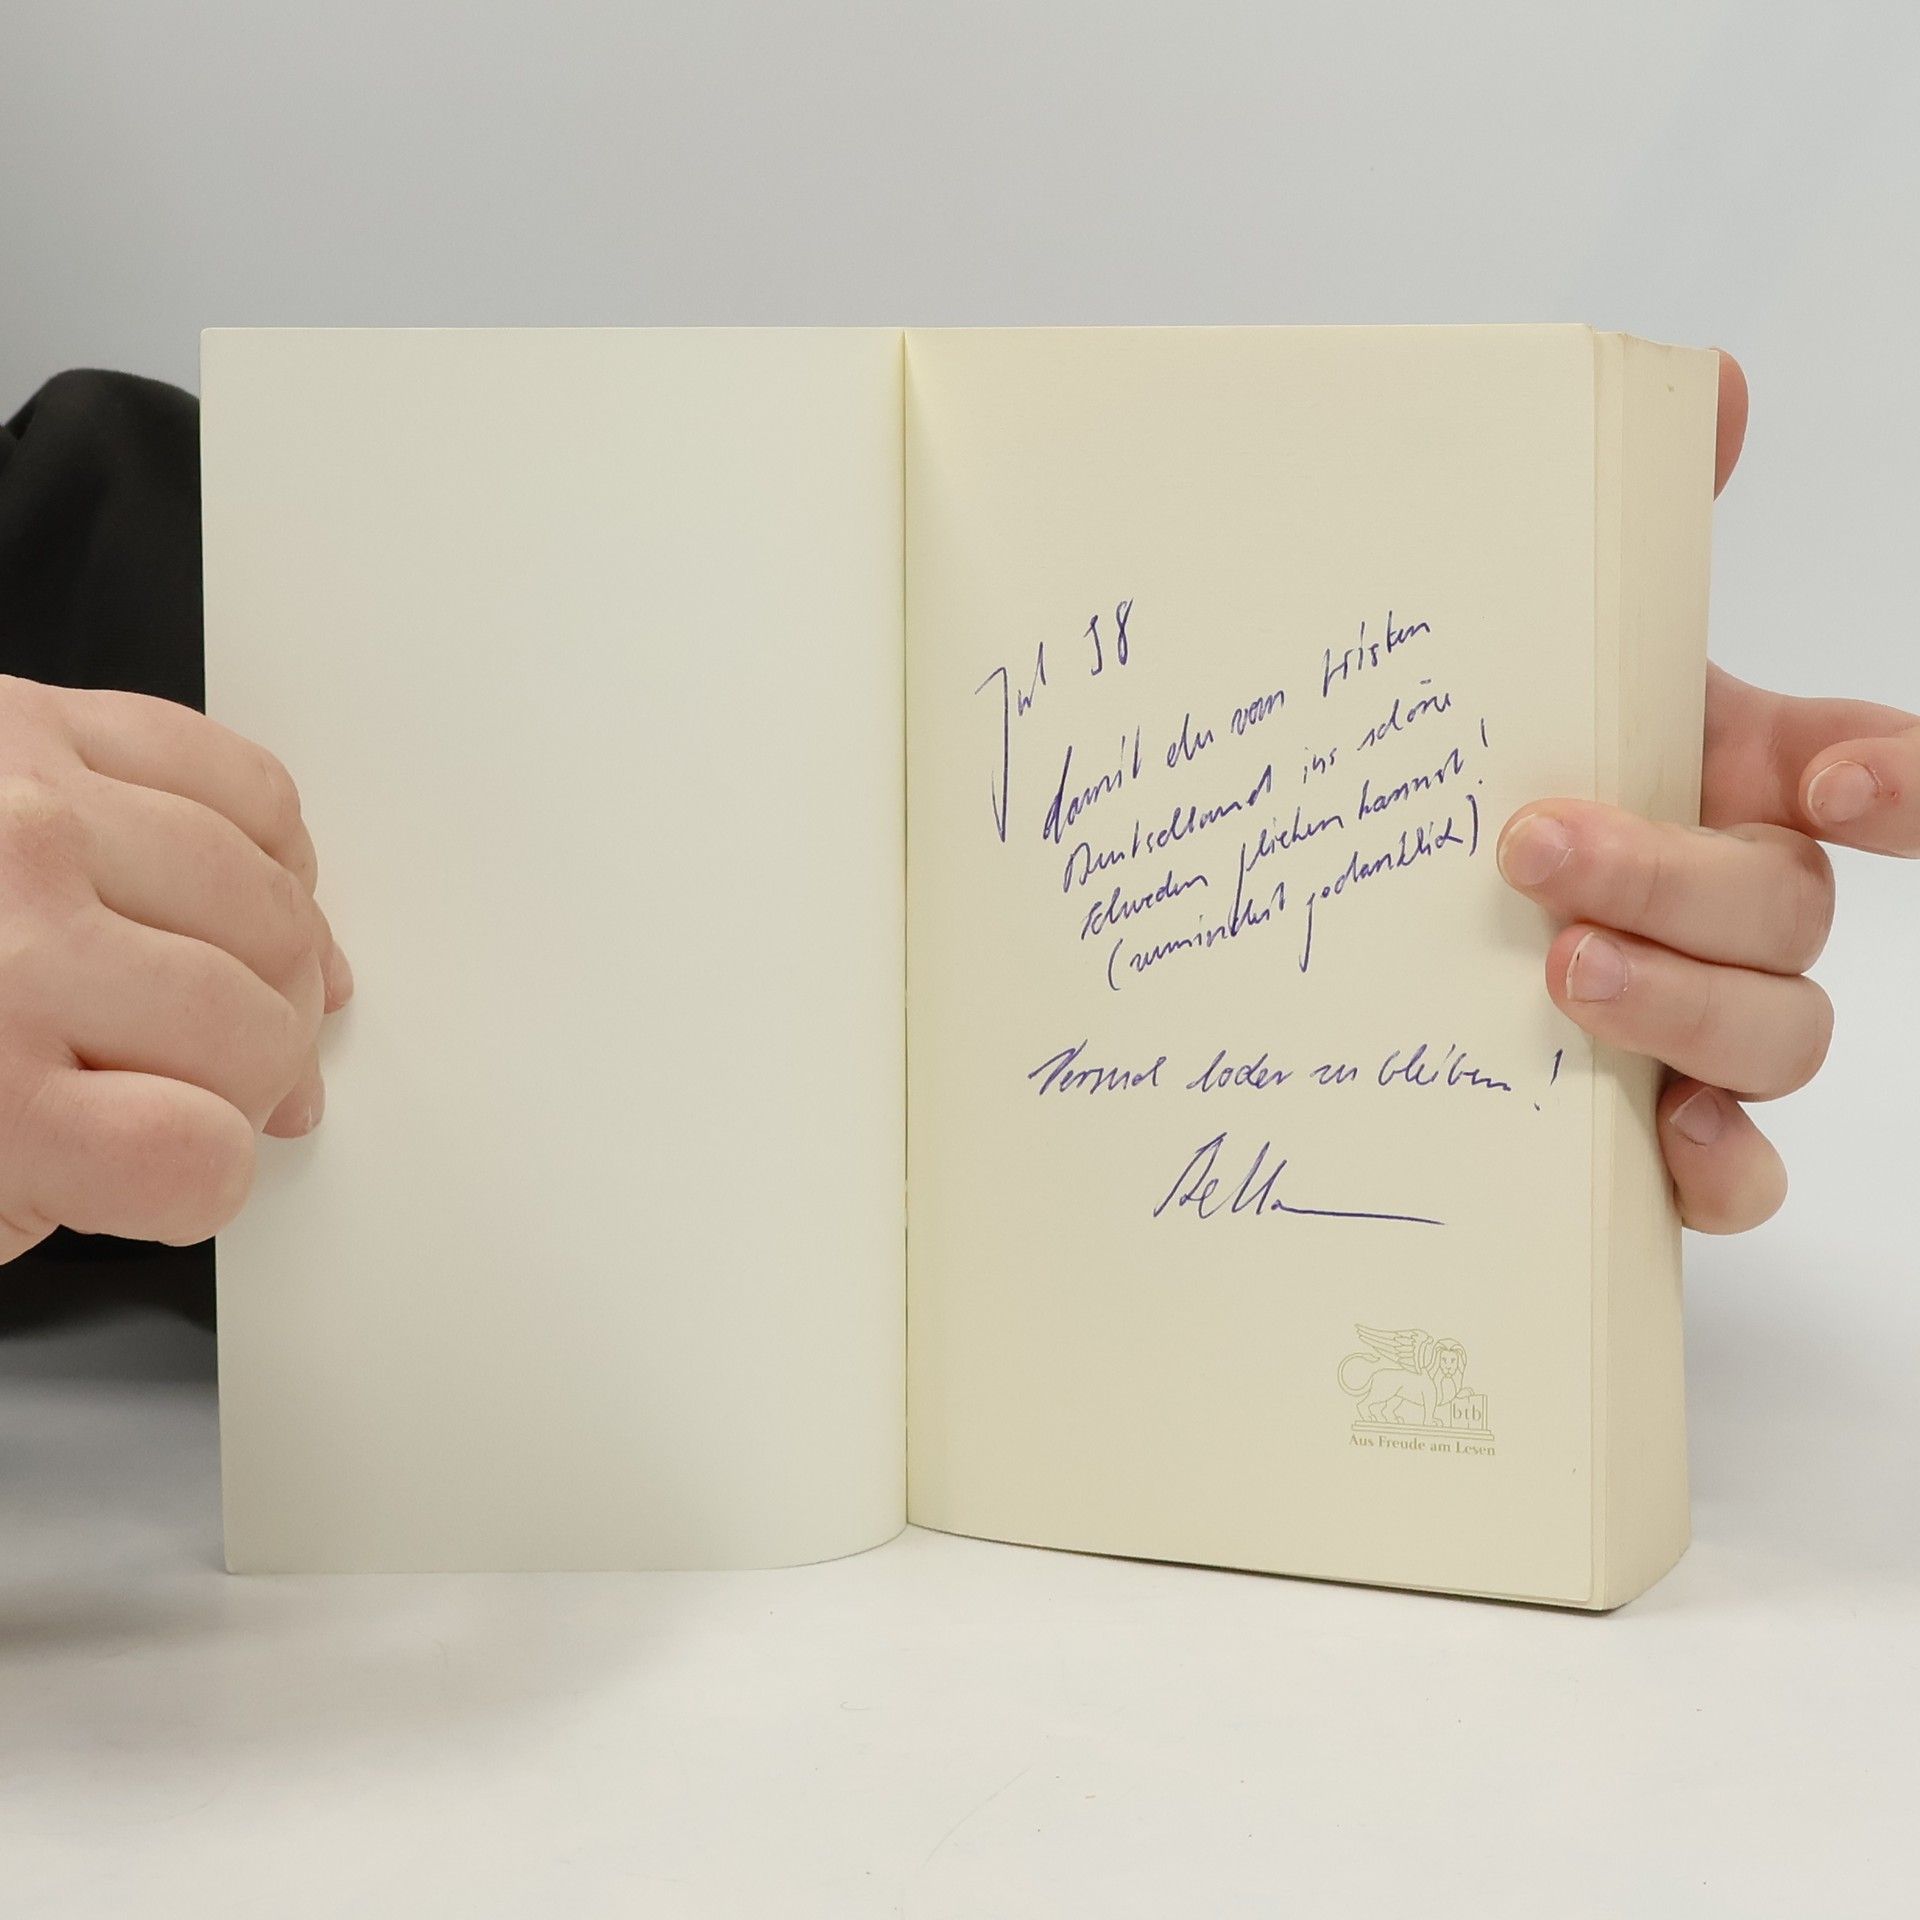 Jul 98
damit du vom tristen
Deutschland ins schöne
Schweden fliehen kannst!
(zumindest gedanklich)
Versuch locker zu bleiben!
btb
Aus Freude am Lesen